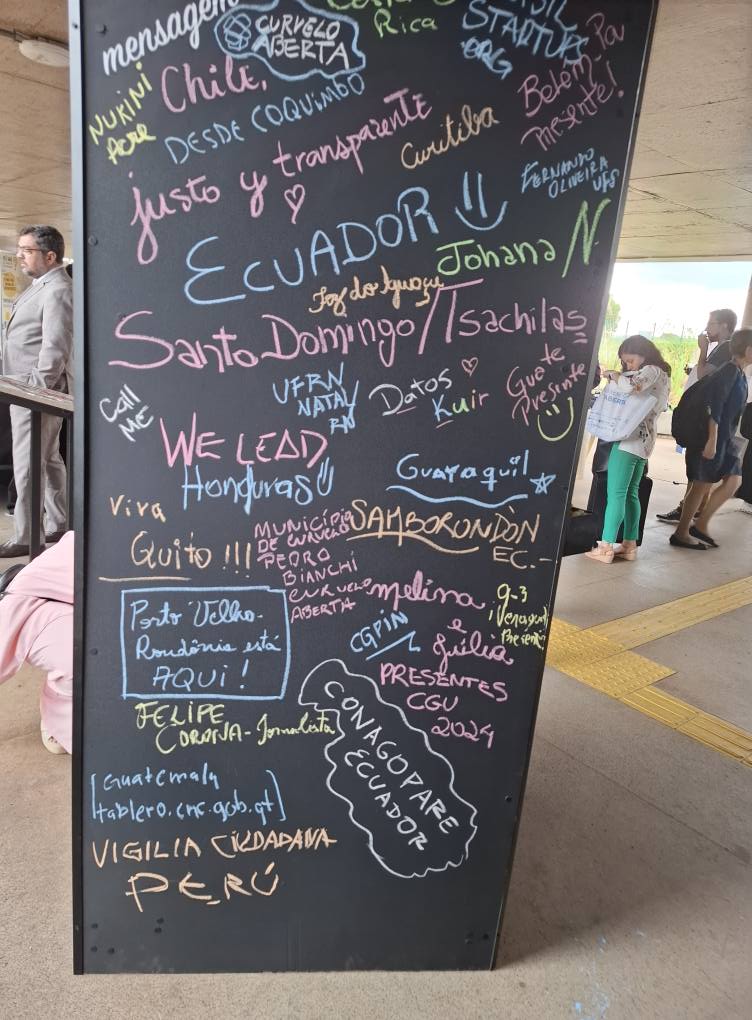 mensagem
CURVELO
ABERTA
Rica
STARTUPS
ORG
NUKINI
ACRE
Chile,
DESDE COQUIMBO
justo y transparente
Curitiba
Belém-Pa
Presente!
FERNANDO
OLIVEIRA
UFS
ECUADOR
Johana N.
Foz do Iguaçu
Santo Domingo/Tsachilas
Call
ME
UFRN
NATAL
RN
Datos
Kuir
Guate
Presente
WE LEAD
Honduras
Guayaquil
Viva
Quito !!!
MUNICÍPIO
DE CURVELO
PEDRO
BIANCHI
CURVELO
ABERTA
SAMBORONDÒN
EC.-
Porto Velho-
Rondônia está
AQUI!
melina
e
júlia
PRESENTES
CGU
2024
CGPIN
9-3
Presente
FELIPE
CORONA-Jornalista
CONAGOPARE
ECUADOR
[Guatemala
tablero.cnc.gob.gt]
VIGILIA CIUDADANA
PERÚ